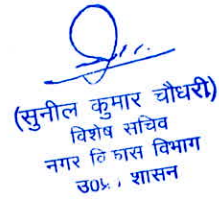 (सुनील कुमार चौधरी)
विशेष सचिव
नगर विकास विभाग
उ0प्र0, शासन